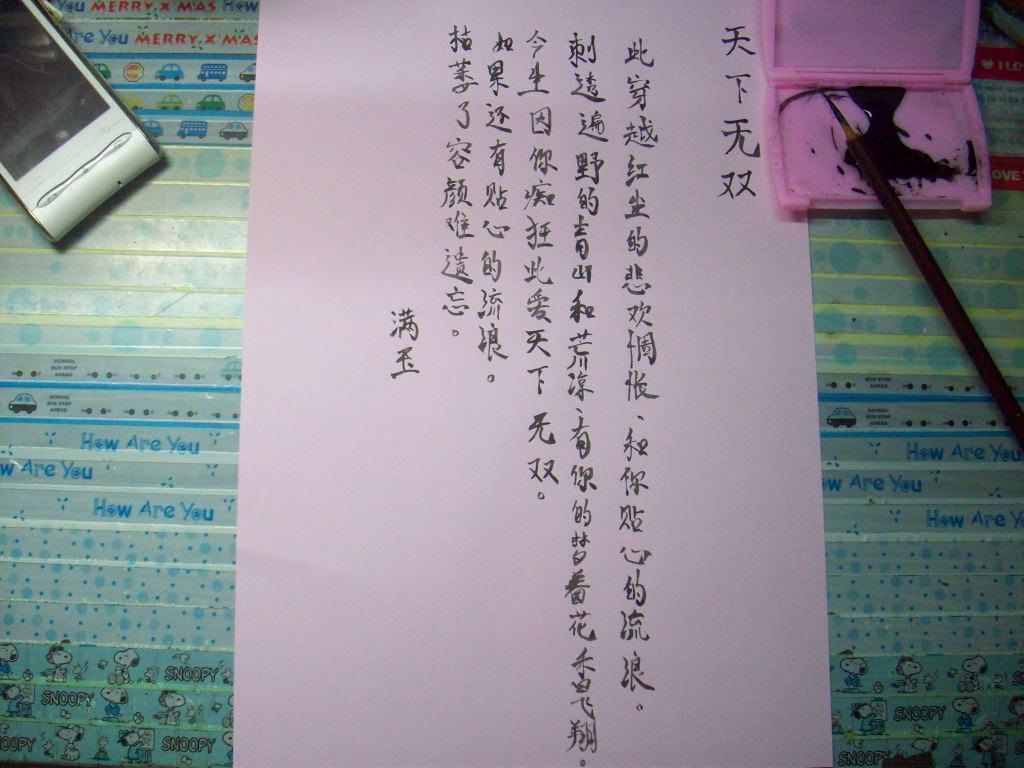 天下无双
此穿越红尘的悲欢惆怅、和你贴心的流浪。
刺透遍野的青山和荒凉、有你的花香飞翔。
今生因你痴狂此爱天下无双。
如果还有贴心的流浪。
枯萎了容颜难遗忘。
满玉
MERRY X'MAS How
Are You MERRY X'MAS
SCHOOL BUS STOP AHEAD
SCHOOL BUS STOP AHEAD
How Are You
How Are You
How Are You
SNOOPY
SNOOPY
SNOOPY
I LO
LOVE
SCHOOL BUS STOP AHEAD
SCHOOL BUS STOP AHEAD
Are You
How Are You
SNOOPY
SNOOPY